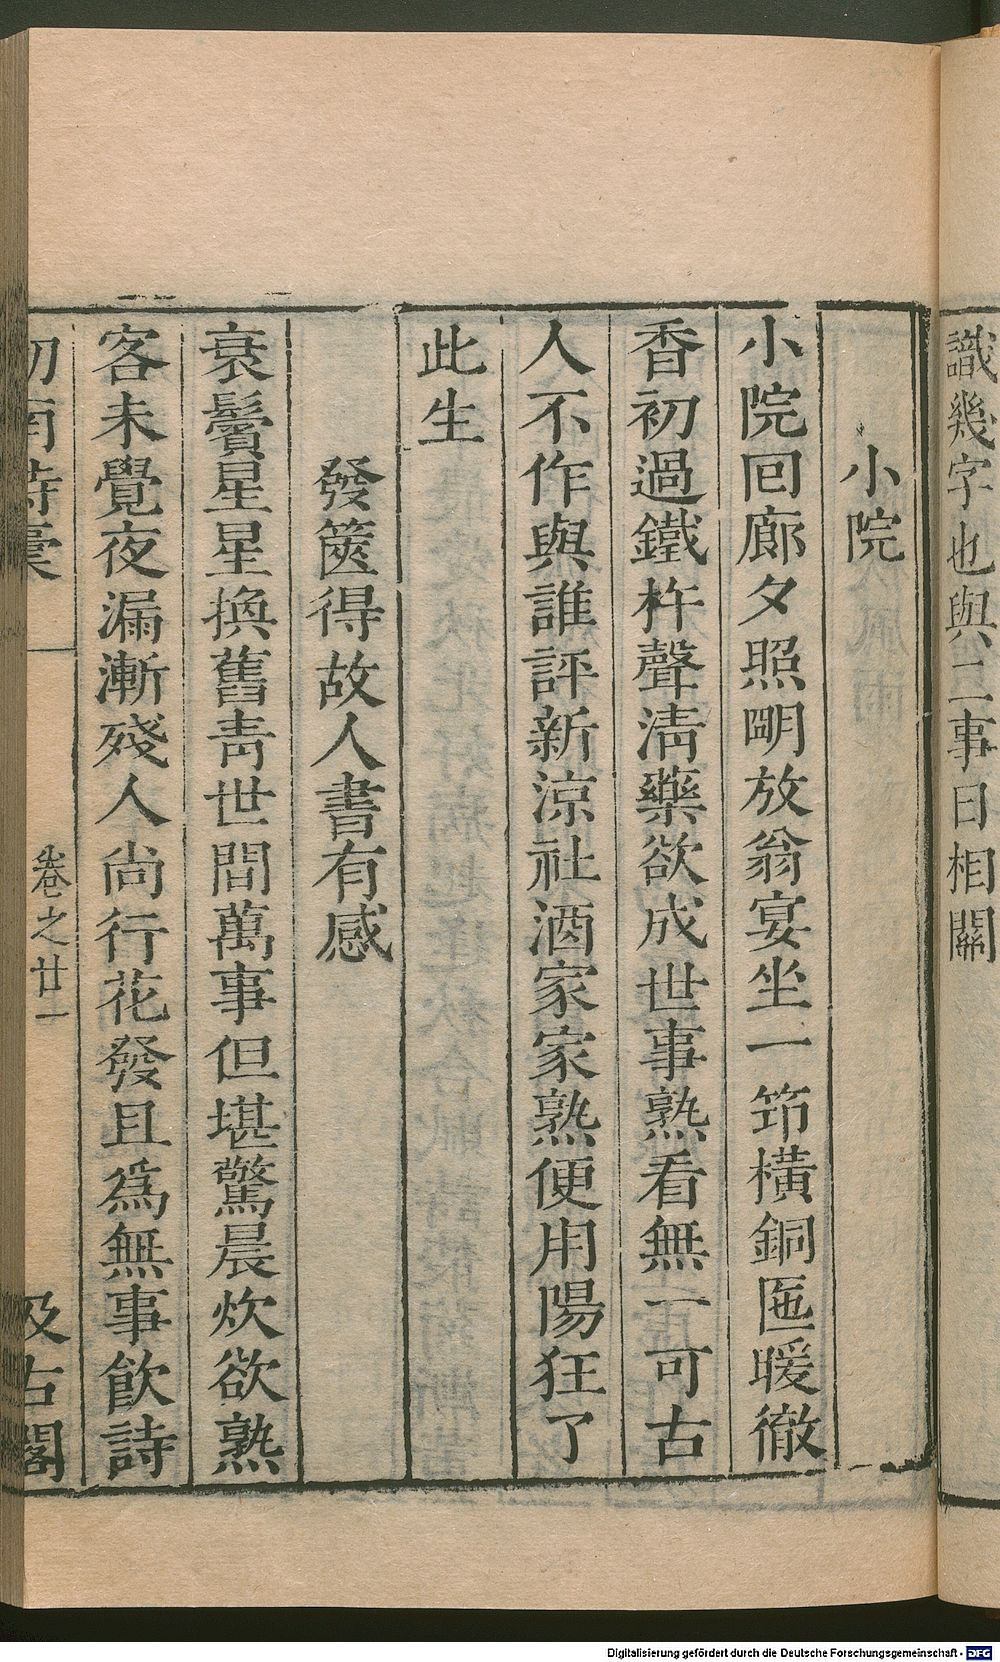 識幾字也與二事日相關
小院
小院回廊夕照明放翁宴坐一笻橫銅匜暖徹
香初過鐵杵聲淸藥欲成世事熟看無一可古
人不作與誰評新涼社酒家家熟便用陽狂了
此生
發篋得故人書有感
衰鬢星星換舊靑世間萬事但堪驚晨炊欲熟
客未覺夜漏漸殘人尚行花發且爲無事飮詩
劒南詩稾
卷之廿一
汲古閣
Digitalisierung gefördert durch die Deutsche Forschungsgemeinschaft - DFG